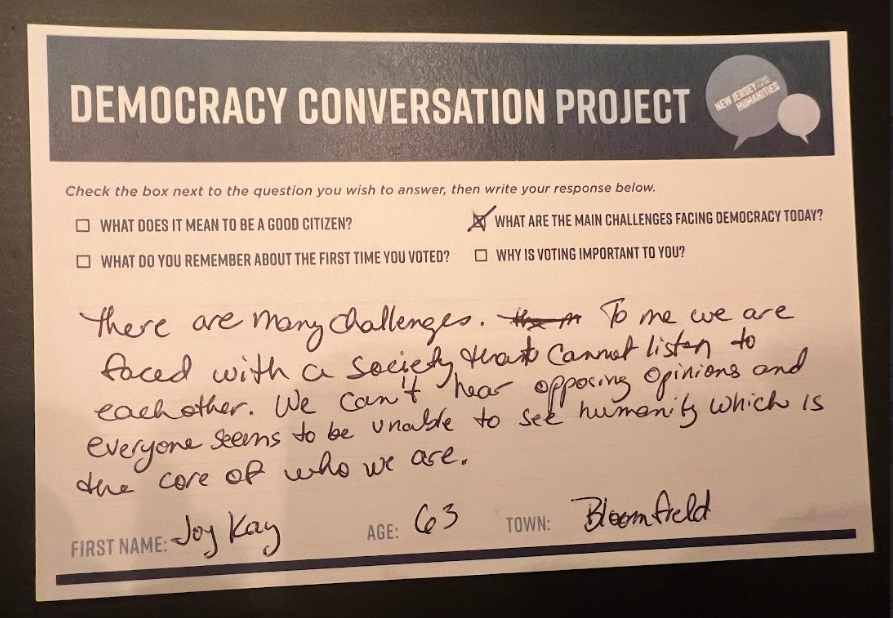 DEMOCRACY CONVERSATION PROJECT
NEW JERSEY
HUMANITIES
Check the box next to the question you wish to answer, then write your response below.
WHAT DOES IT MEAN TO BE A GOOD CITIZEN?
WHAT ARE THE MAIN CHALLENGES FACING DEMOCRACY TODAY?
WHAT DO YOU REMEMBER ABOUT THE FIRST TIME YOU VOTED?
WHY IS VOTING IMPORTANT TO YOU?
There are many challenges. To me we are
faced with a society that cannot listen to
eachother. We can't hear opposing opinions and
everyone seems to be unable to see humanity which is
the core of who we are.
FIRST NAME: Joy Kay AGE: 63 TOWN: Bloomfield